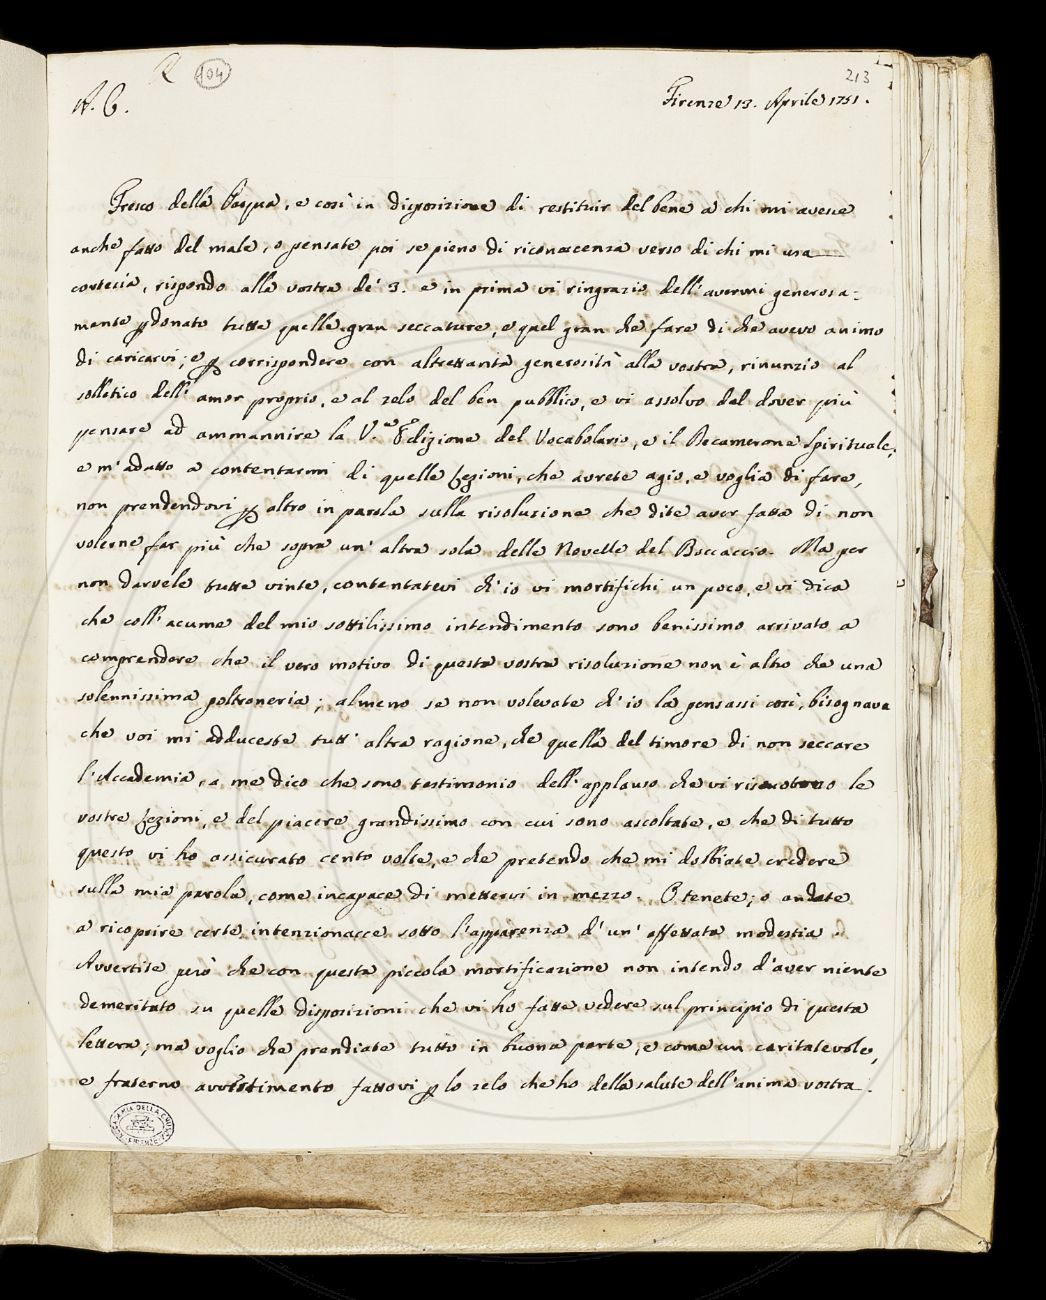 104
213
A. C.
Firenze 13. Aprile 1751.
Fresco della Pasqua, e così in disposizione di restituir del bene a chi mi avesse
anche fatto del male, o pensate poi se pieno di riconoscenza verso di chi mi usa
cortesia, rispondo alla vostra de' 3. e in prima vi ringrazio dell'avermi generosa=
mente pdonato tutte quelle gran seccature, e quel gran che fare di che avevo animo
di caricarvi; e p corrispondere con altrettanta generosità alla vostra, rinunzio al
solletico dell'amor proprio, e al zelo del ben pubblico, e vi assolvo dal dover più
pensare ad ammannire la V.ª Edizione del Vocabolario, e il Decamerone Spirituale,
e m'adatto a contentarmi di quelle Lezioni, che avrete agio, e voglia di fare,
non prendendovi p altro in parola sulla risoluzione che dite aver fatta di non
volerne far più che sopra un'altra sola delle Novelle del Boccaccio. Ma per
non darvele tutte vinte, contentatevi ch'io vi mortifichi un poco, e vi dica
che coll'acume del mio sottilissimo intendimento sono benissimo arrivato a
comprendere che il vero motivo di questa vostra risoluzione non è altro che una
solennissima poltroneria; almeno se non volevate ch'io la pensassi così, bisognava
che voi mi adduceste tutt'altra ragione, che quella del timore di non seccare
l'Accademia, a me dico che sono testimonio dell'applauso che vi riscuotono le
vostre Lezioni, e del piacere grandissimo con cui sono ascoltate, e che di tutto
questo vi ho assicurato cento volte, e che pretendo che mi dobbiate credere
sulla mia parola, come incapace di mettervi in mezzo. O tenete; o andate
a ricoprire certe intenzionacce sotto l'apparenza d'un'affettata modestia.
Avvertite però che con questa piccola mortificazione non intendo d'aver niente
demeritato su quelle disposizioni che vi ho fatte vedere sul principio di questa
lettera; ma voglio che prendiate tutto in buona parte, e come un caritatevole,
e fraterno avvertimento fattovi p lo zelo che ho della salute dell'anima vostra.